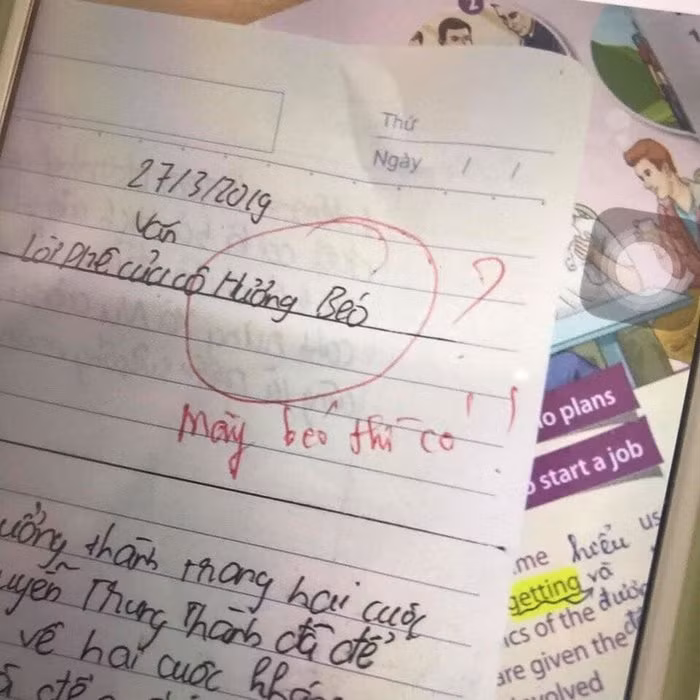 2
Thứ
Ngày / /
27/3/2019
Văn
Lời Phê của cô Hưởng Béo
?
Mày béo thì có !!
ưởng thành trong hai cuộc
uyễn Trung Thành đã để
về hai cuộc khán
o plans
start a job
me hiểu us
getting và
ics of the được
are given the
volved